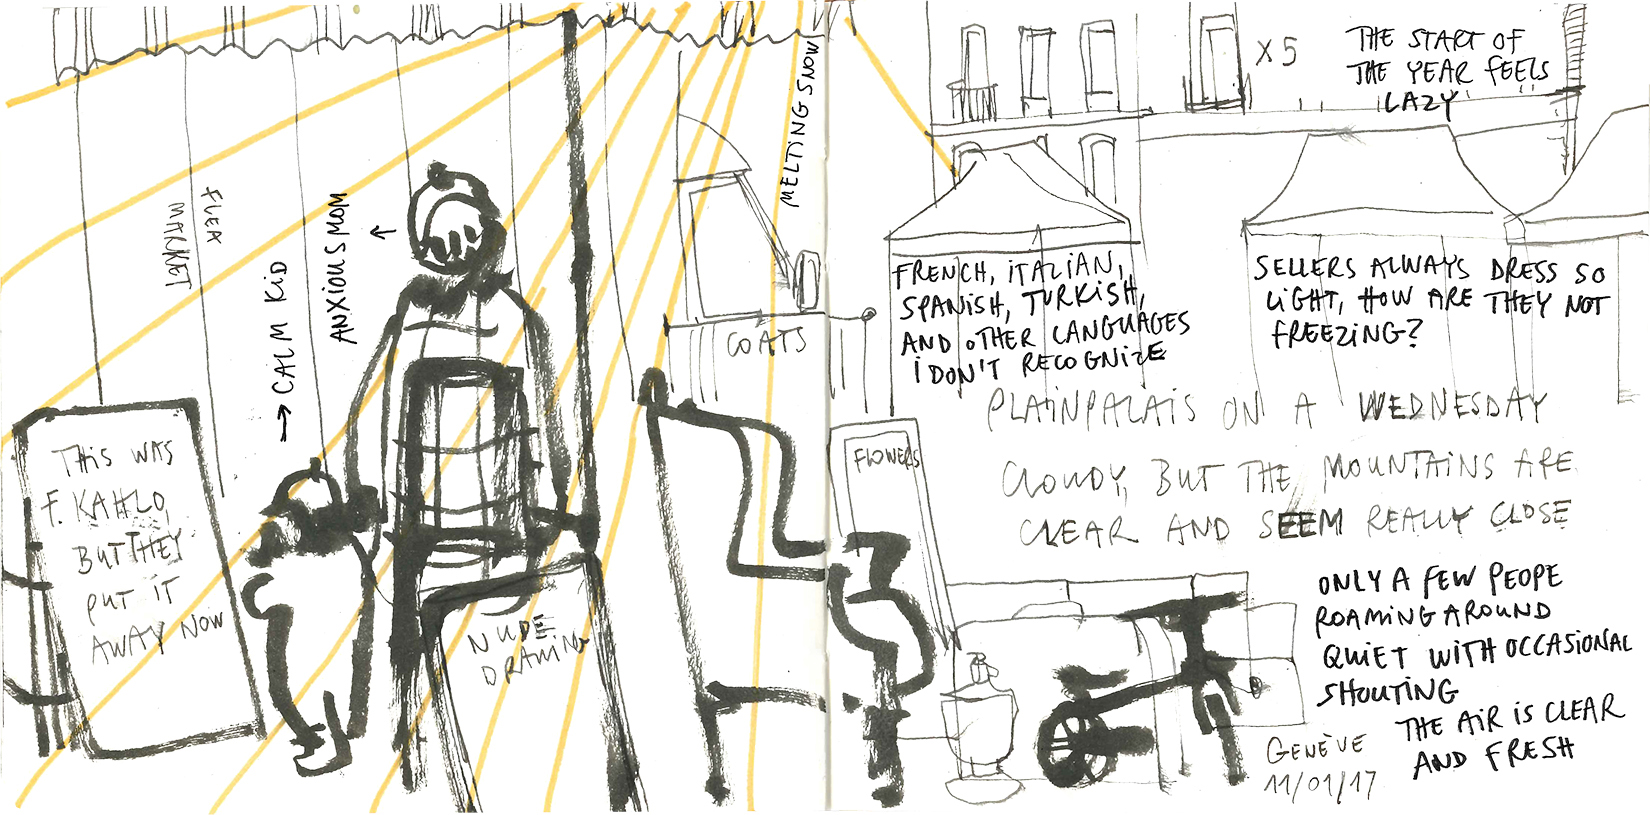 FLEA
MARKET
→ CALM KID
ANXIOUS MOM
THIS WAS
F. KAHLO,
BUT THEY
PUT IT
AWAY NOW
NUDE
DRAWING
MELTING SNOW
COATS
X 5
THE START OF
THE YEAR FEELS
LAZY
FRENCH, ITALIAN,
SPANISH, TURKISH,
AND OTHER LANGUAGES
I DON'T RECOGNIZE
SELLERS ALWAYS DRESS SO
LIGHT, HOW ARE THEY NOT
FREEZING?
PLAINPALAIS ON A WEDNESDAY
FLOWERS
CLOUDY, BUT THE MOUNTAINS ARE
CLEAR AND SEEM REALLY CLOSE
ONLY A FEW PEOPE
ROAMING AROUND
QUIET WITH OCCASIONAL
SHOUTING
THE AIR IS CLEAR
AND FRESH
GENÈVE
11/01/17